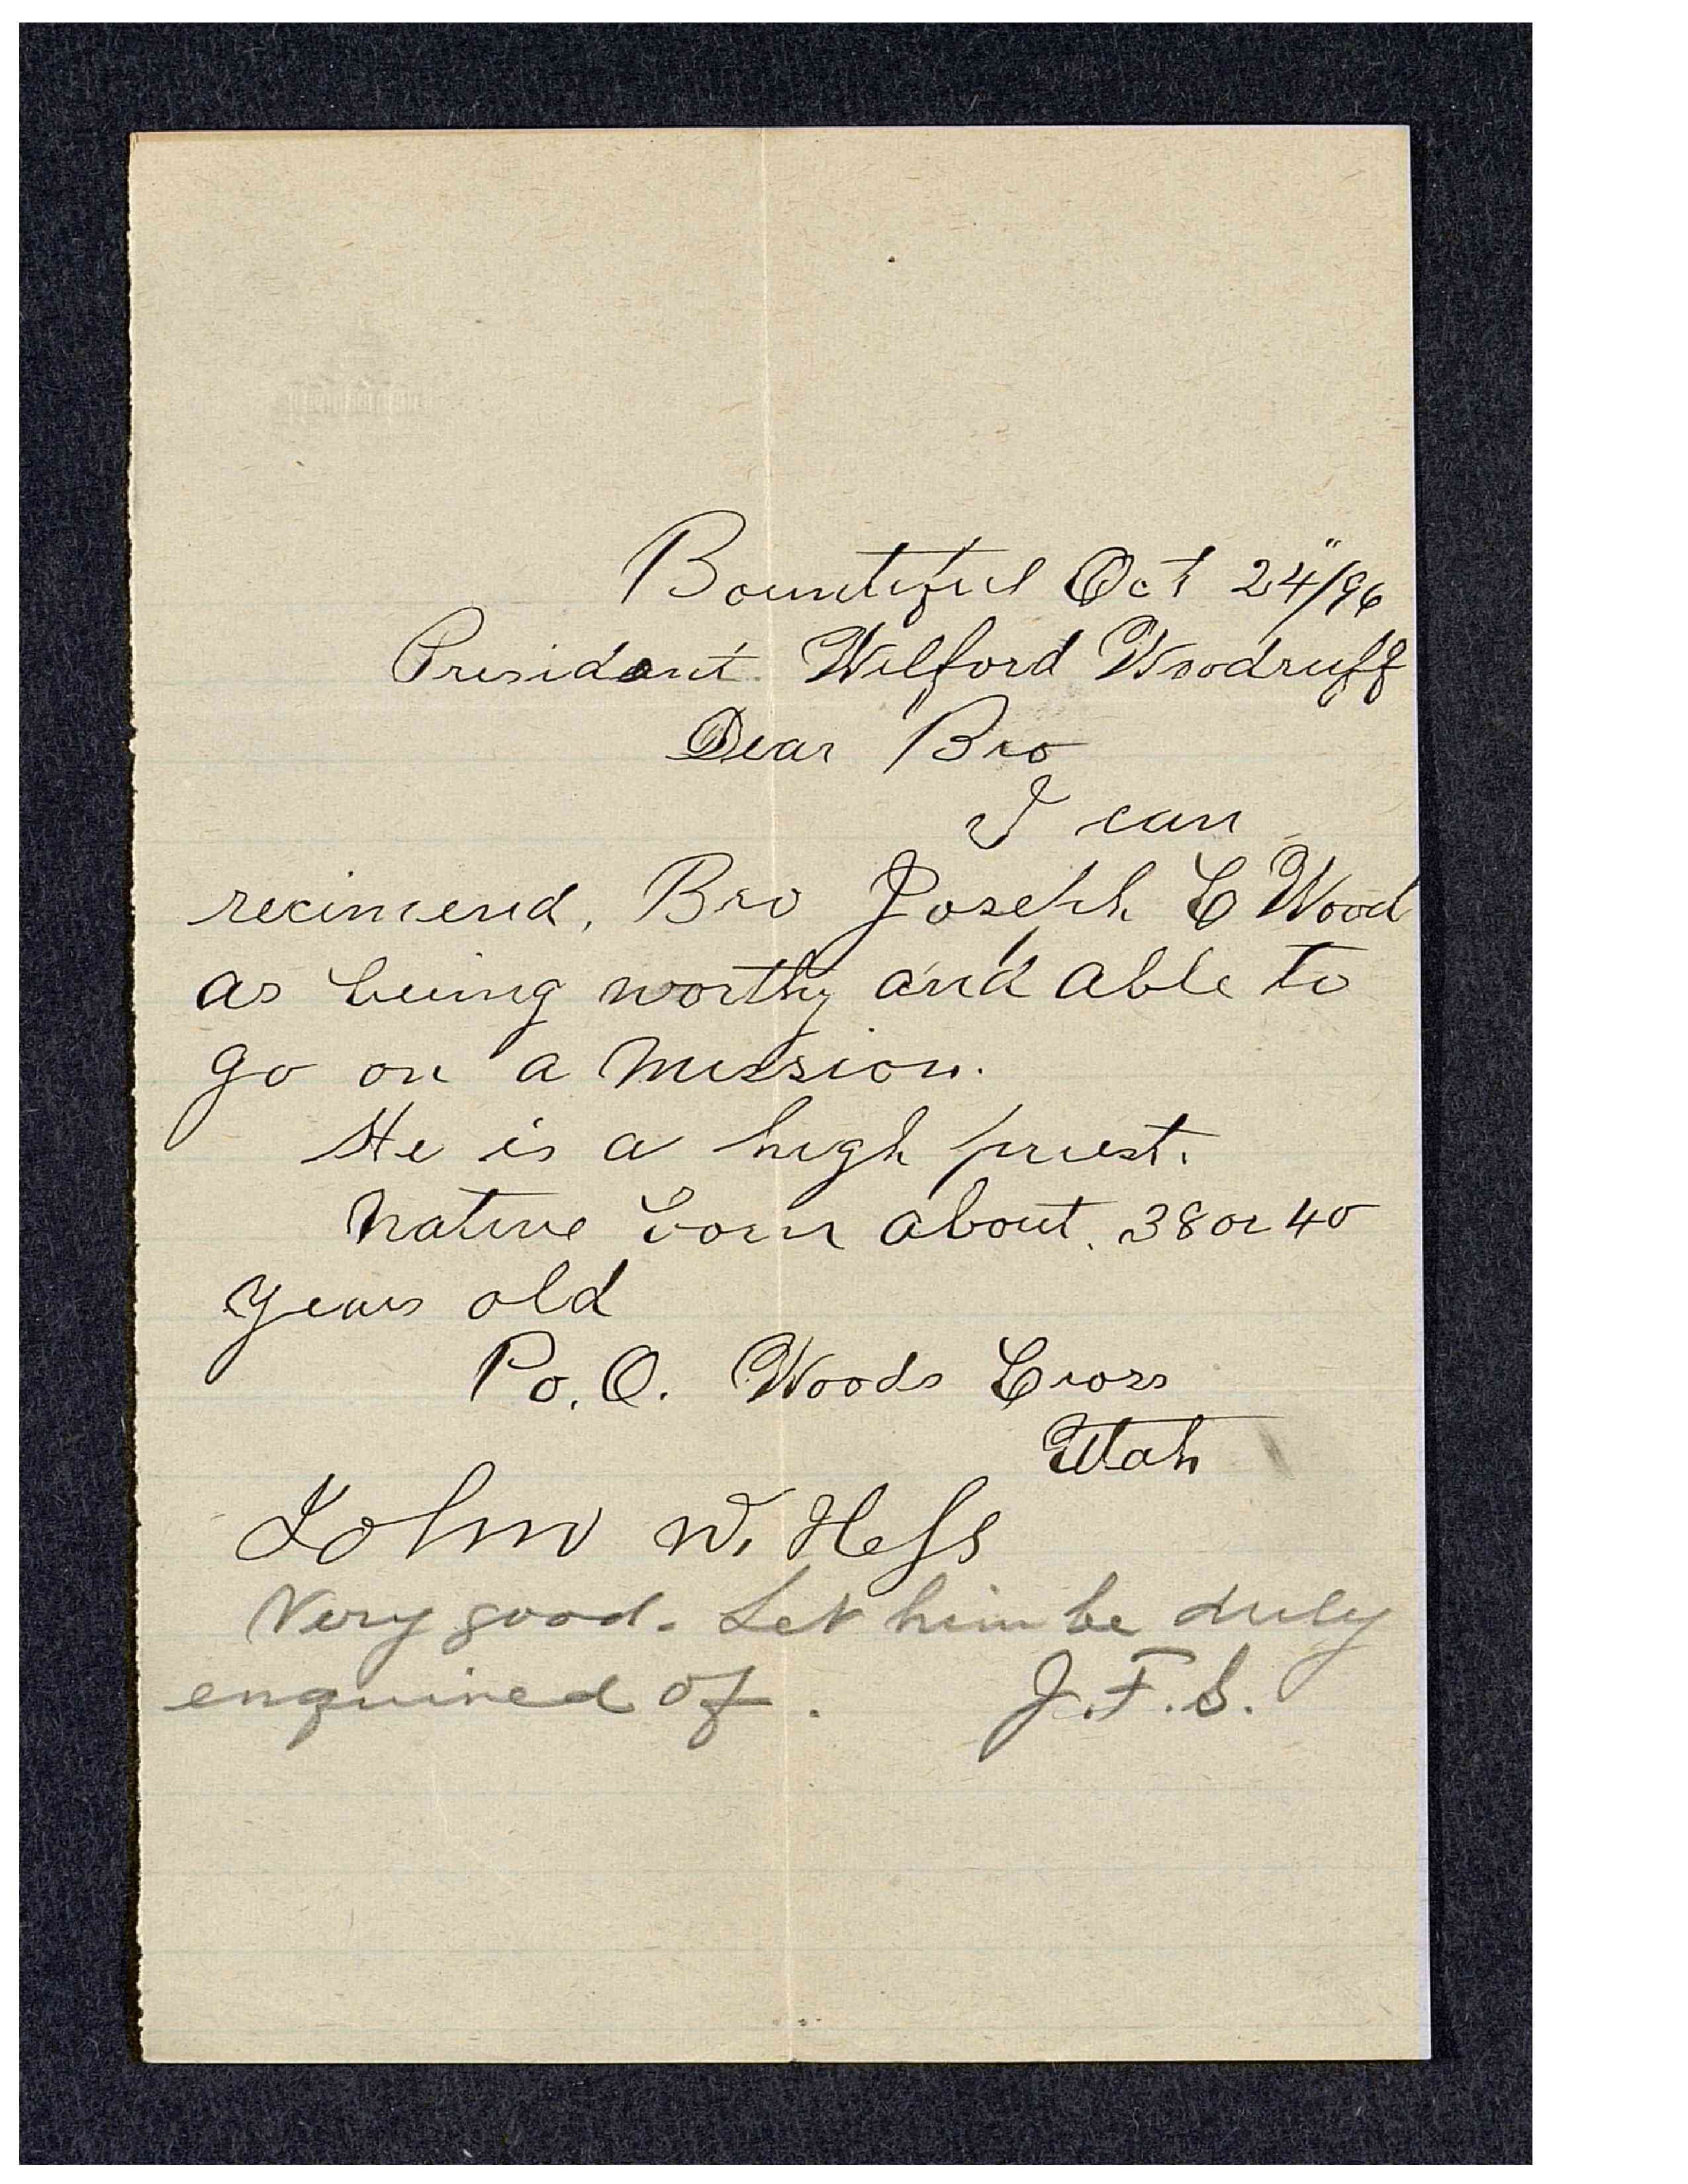 Bountiful Oct 24"/96
President Wilford Woodruff
Dear Bro
I can
recimend, Bro Joseph C Wood
as being worthy and able to
go on a mission.
He is a high priest.
Native born about 38 or 40
years old
Po. O. Woods Cross
Utah
John W. Hess
Very good. Let him be duly
enquired of. J. F. S.